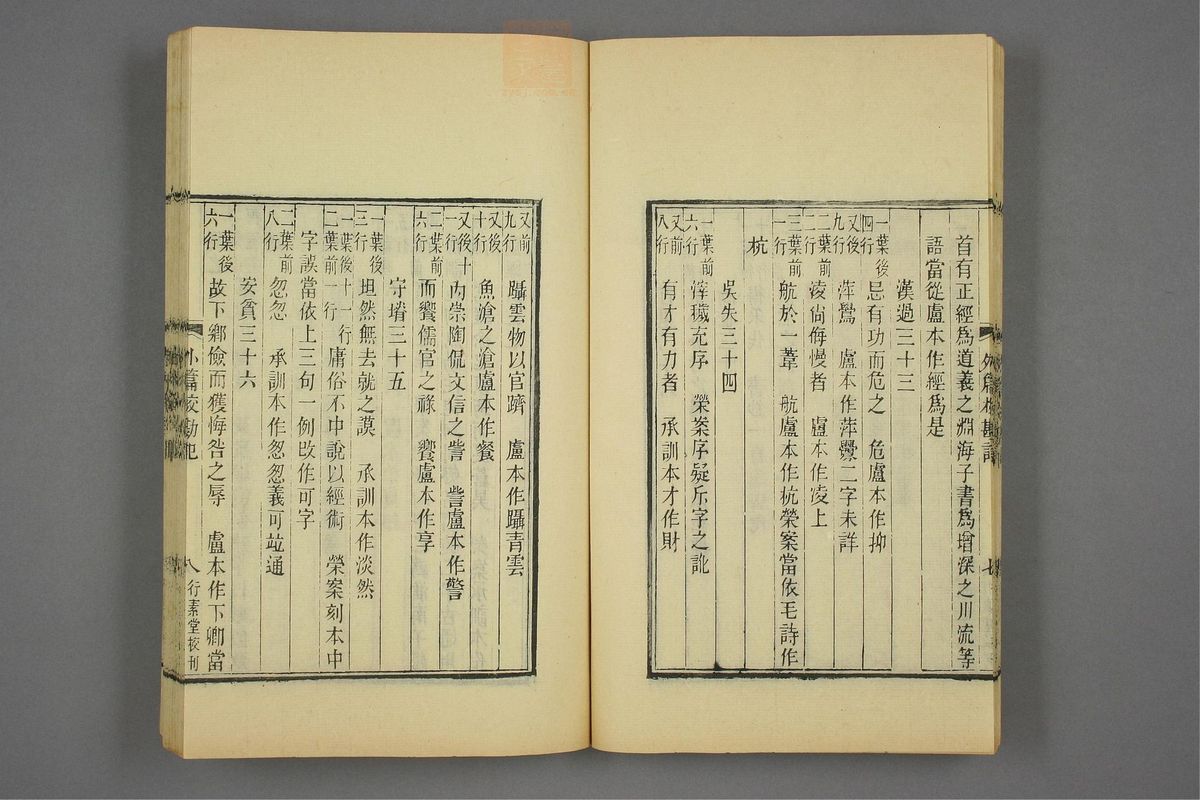 首有正經爲道義之淵海子書爲增深之川流等
語當從盧本作經爲是
漢過三十三
一葉後四行 忌有功而危之 危盧本作抑
又後九行 萍鸎 盧本作萍釁二字未詳
二葉前二行 凌尙侮慢者 盧本作凌上
三葉前一行 航於一葦 航盧本作杭榮案當依毛詩作
杭
吳失三十四
一葉前六行 滓穢充序 榮案序疑斥字之訛
又前八行 有才有力者 承訓本才作財
七
又前九行 躡雲物以官躋 盧本作躡青雲
又後十行 魚滄之滄盧本作餐
又後十一行 內崇陶侃文信之訾 訾盧本作警
二葉前六行 而饗儒官之祿 饗盧本作享
守塉三十五
一葉後三行 坦然無去就之謨 承訓本作淡然
一葉後十一行二葉前一行 庸俗不中說以經術 榮案刻本中
字誤當依上三句一例改作可字
二葉前八行 忽忽 承訓本作忽忽義可竝通
安貧三十六
一葉後六行 故下鄉儉而獲悔咎之辱 盧本作下卿當
八 行素堂校刊